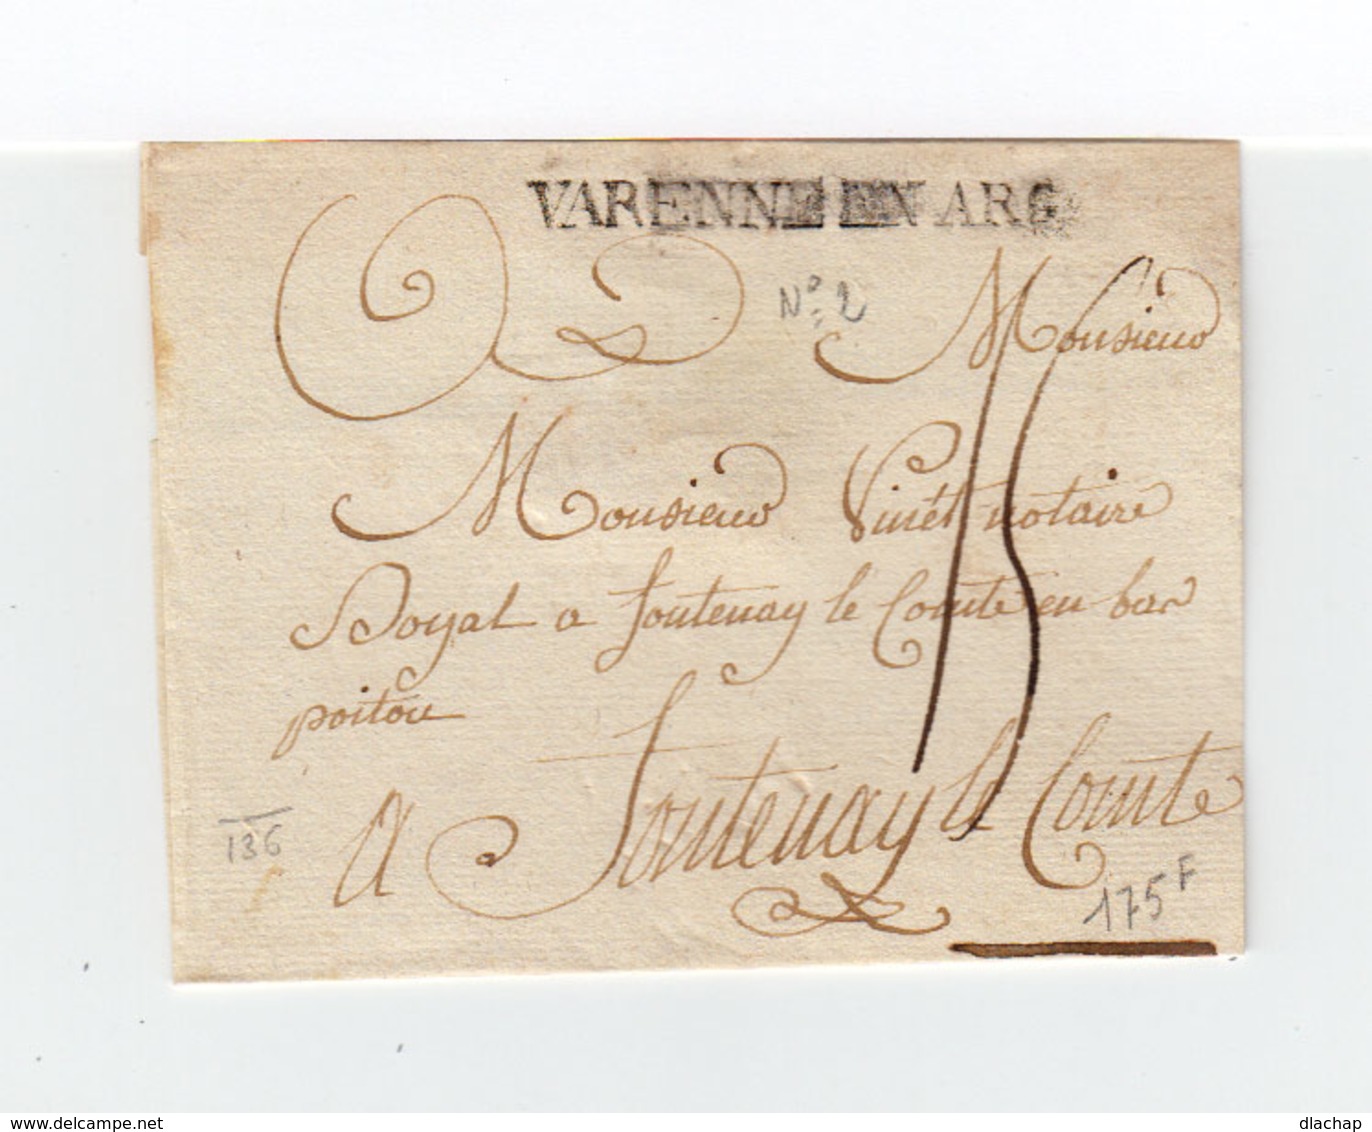 VARENNE EN ARG
N° 2
Monsieur
15
Monsieur Vinét notaire
Royal a fontenay le Comte en bas
poitou
a fontenay le Comte
136
175 F
www.delcampe.net
dlachap